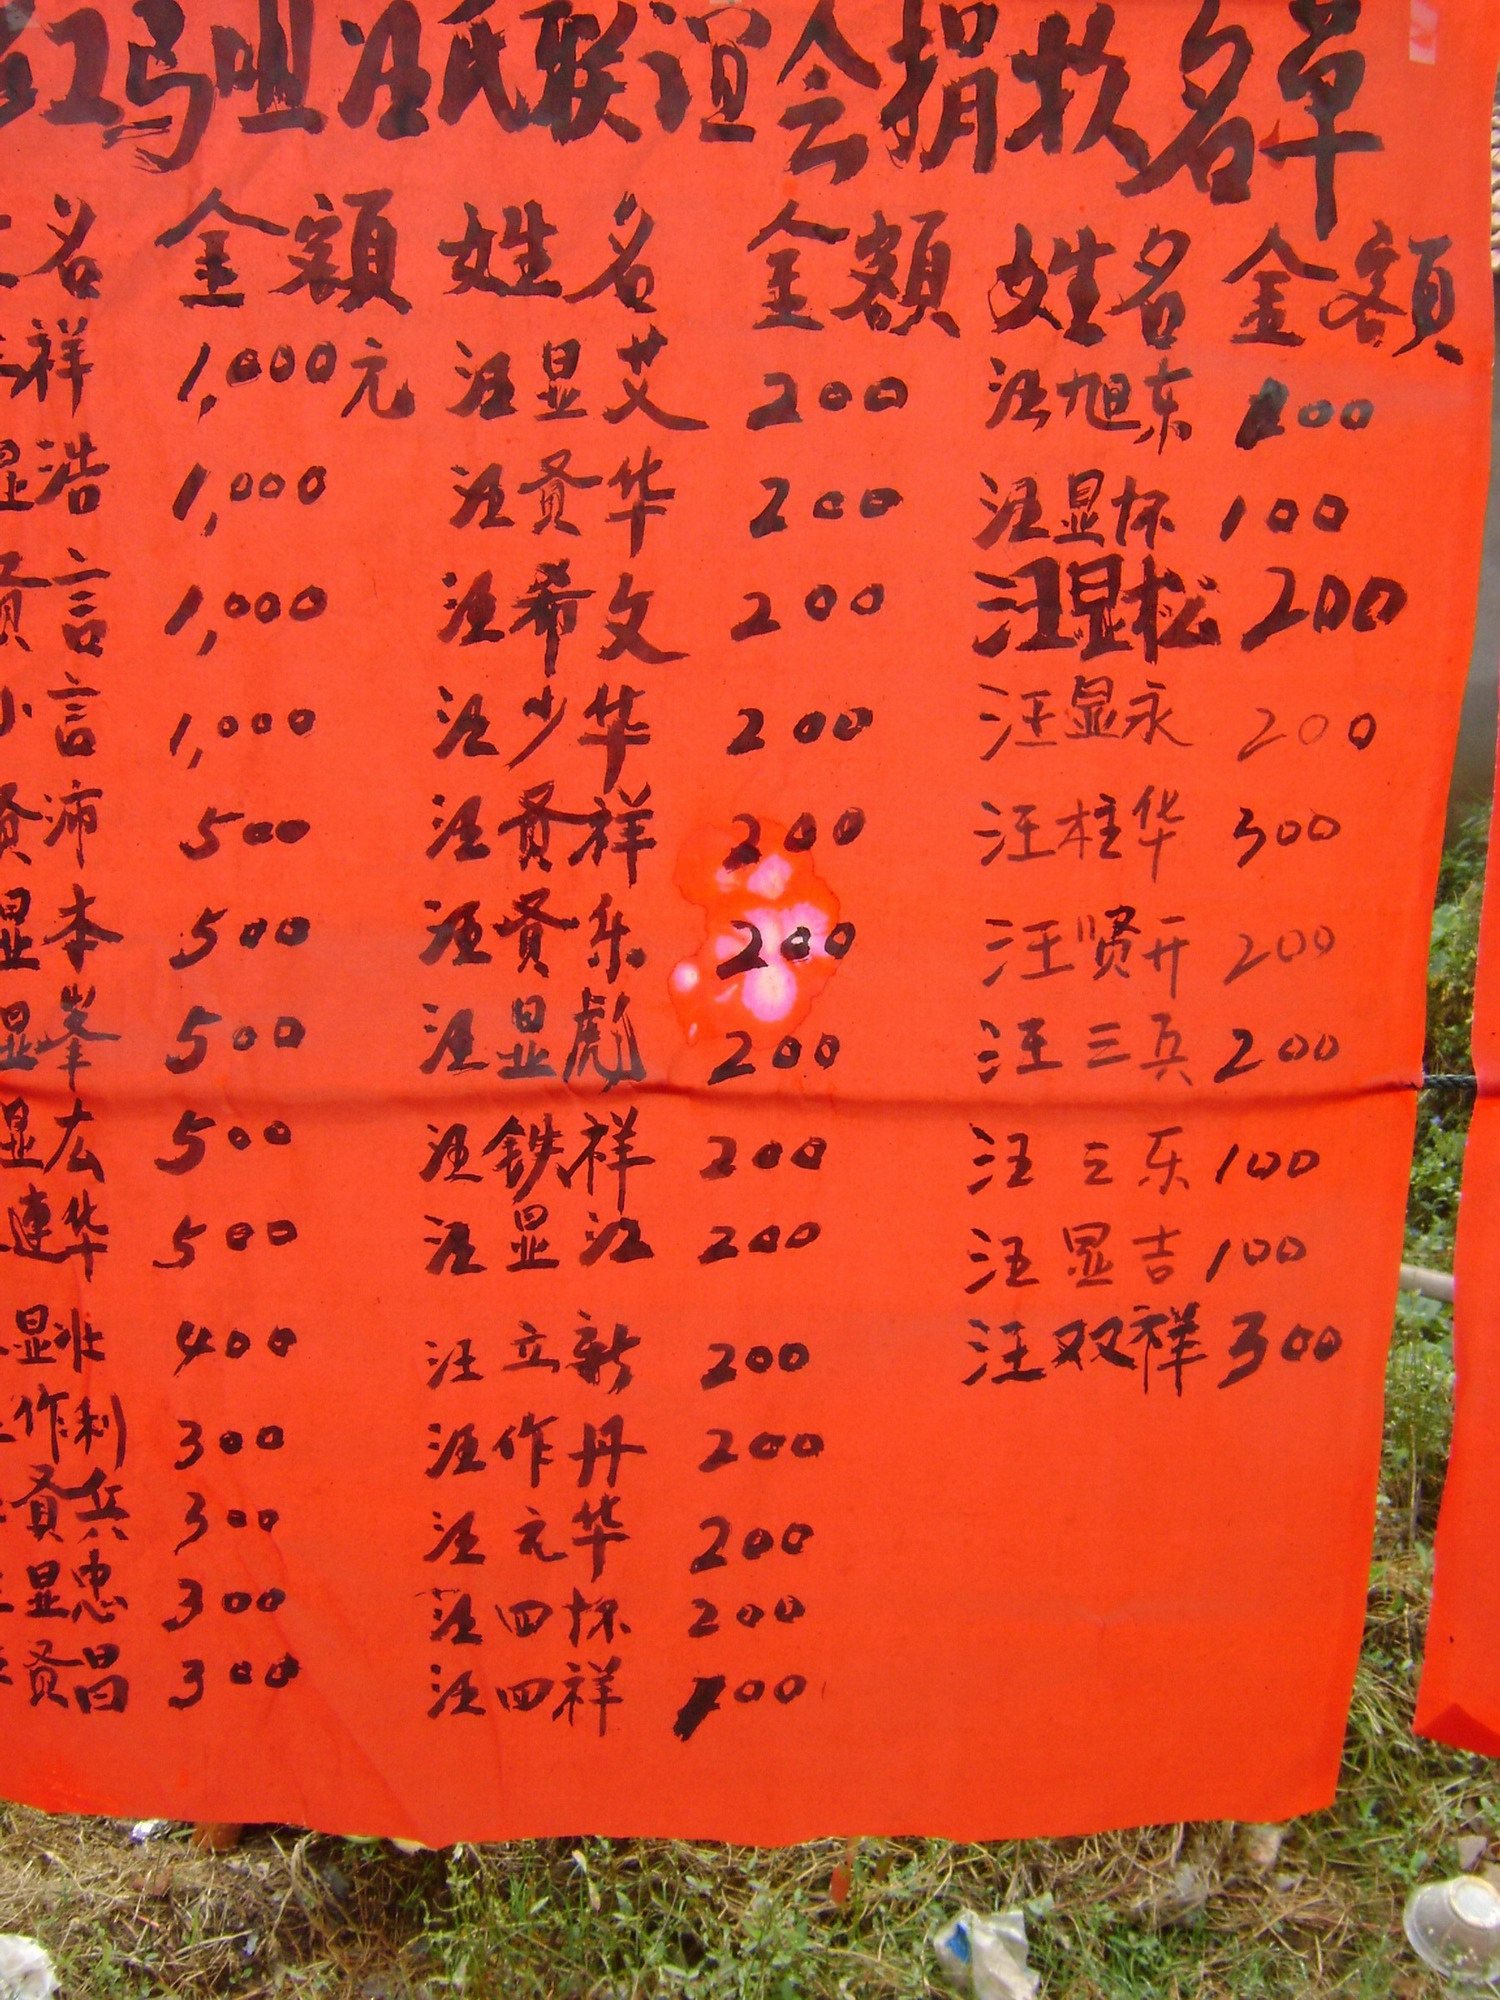 红马咀汪氏联谊会捐款名单
名 金额 姓名 金额 姓名 金额
祥 1,000元 汪显艾 200 汪旭东 200
显浩 1,000 汪贤华 200 汪显怀 100
贤言 1,000 汪希文 200 汪显松 200
小言 1,000 汪少华 200 汪显永 200
贤沛 500 汪贤祥 200 汪柱华 300
显本 500 汪贤乐 200 汪贤开 200
显峯 500 汪显彪 200 汪三兵 200
显宏 500 汪铁祥 200 汪三乐 100
連华 500 汪显江 200 汪显吉 100
显兆 400 汪立新 200 汪双祥 300
作利 300 汪作丹 200
贤兵 300 汪元华 200
显忠 300 汪四怀 200
贤昌 300 汪四祥 100